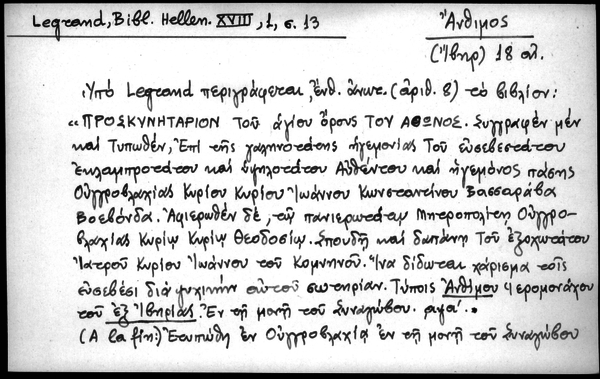 Legrand, Bibl. Hellen. XVIII, 1, σ. 13
Ἄνθιμος
(Ἴβηρ) 18 αἰ.
Ὑπό Legrand περιγράφεται, ἔνθ. ἀνωτ. (ἀριθ. 8) τὸ βιβλίον:
«ΠΡΟΣΚΥΝΗΤΑΡΙΟΝ τοῦ ἁγίου ὄρους ΤΟΥ ΑΘΩΝΟΣ. Συγγραφὲν μέν
καὶ Τυπωθὲν, Ἐπὶ τῆς γαληνοτάτης ἡγεμονίας Τοῦ εὐσεβεστάτου
Ἐκλαμπροτάτου καὶ ὑψηλοτάτου Αὐθέντου καὶ ἡγεμόνος πάσης
Οὑγγροβλαχίας Κυρίου Κυρίου Ἰωάννου Κωνσταντίνου Βασσαράβα
Βοεβόνδα. Ἀφιερωθὲν δέ, τῷ πανιερωτάτῳ Μητροπολίτῃ Οὑγγρο-
βλαχίας Κυρίῳ Κυρίῳ Θεοδοσίῳ. Σπουδῇ καὶ δαπάνῃ Τοῦ ἐξοχωτάτου
Ἰατροῦ Κυρίου Ἰωάννου τοῦ Κομνηνοῦ. Ἵνα δίδωται χάρισμα τοῖς
εὐσεβέσι διὰ ψυχικὴν αὐτοῦ σωτηρίαν. Τύποις Ἀνθίμου Ἱερομονάχου
τοῦ ἐξ Ἰβηρίας. Ἐν τῇ μονῇ τοῦ Συναγώβου. αψα΄.»
(A la fin:) Ἐτυπώθη ἐν Οὑγγροβλαχίᾳ ἐν τῇ μονῇ τοῦ Συναγώβου